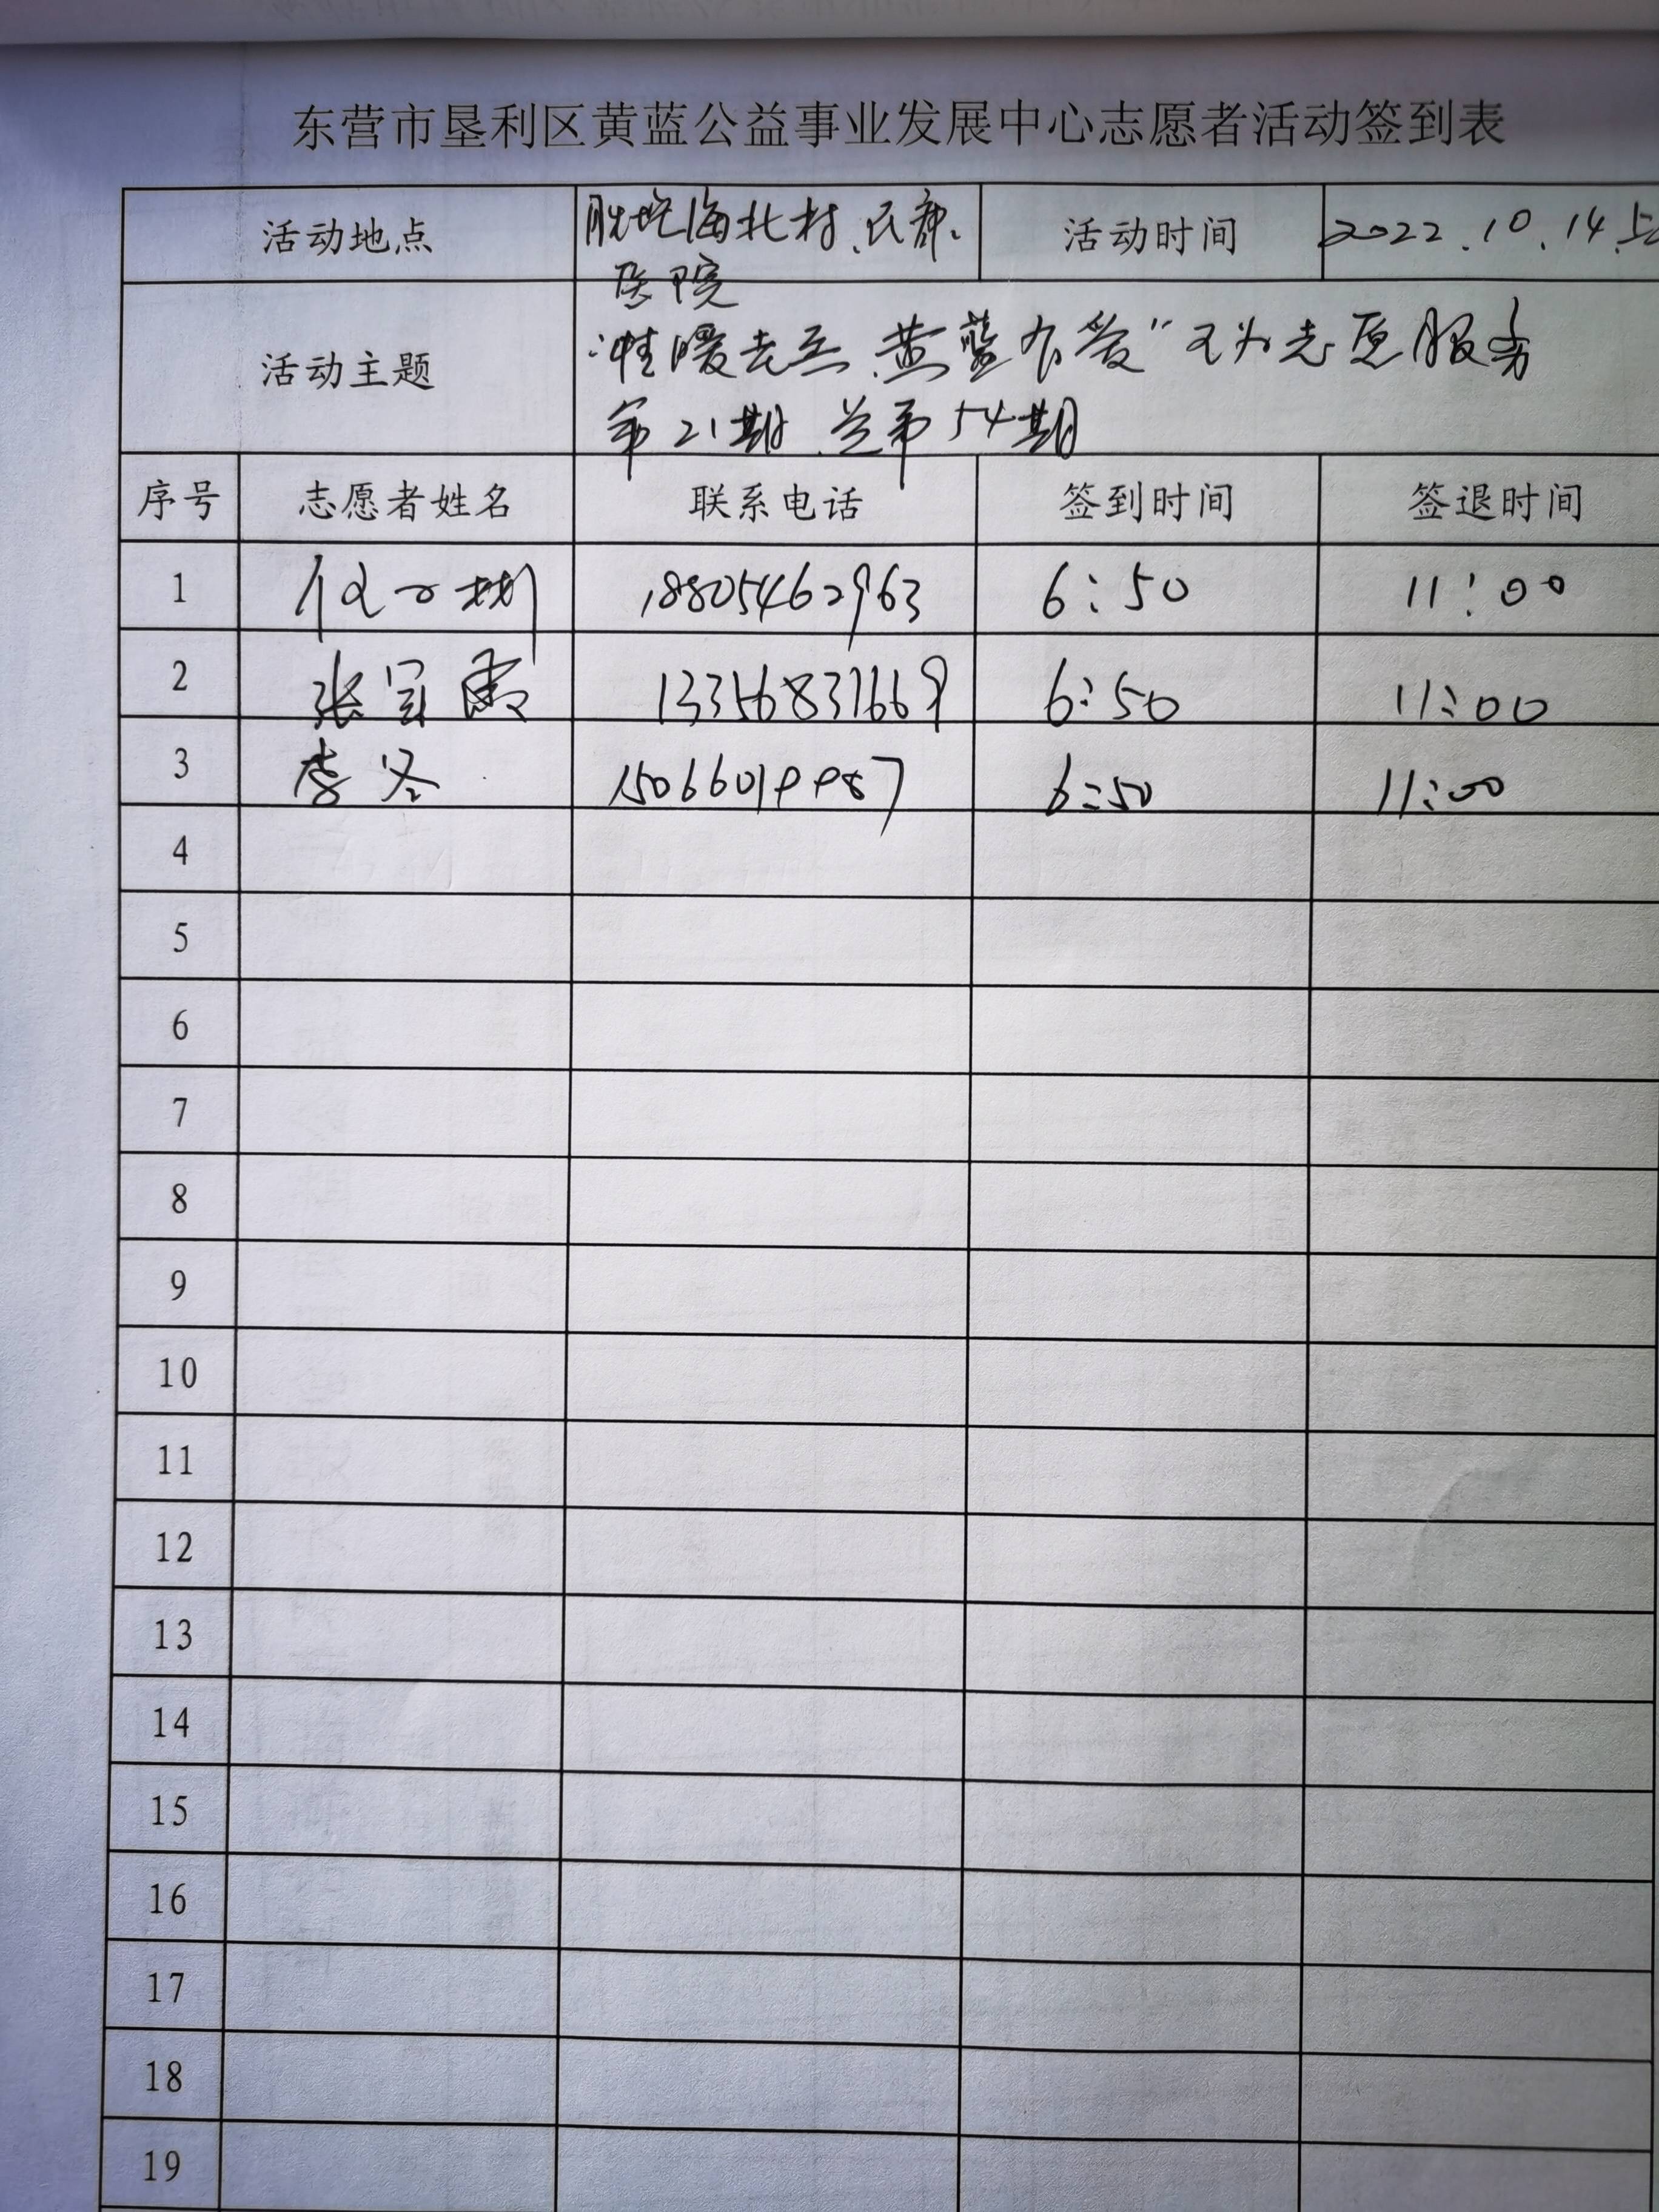 东营市垦利区黄蓝公益事业发展中心志愿者活动签到表
活动地点 胜坨海北村、民都、 活动时间 2022.10.14.上
医院
活动主题 情暖夕阳 黄蓝有爱" 志愿服务
第21期 总第54期
序号 志愿者姓名 联系电话 签到时间 签退时间
1 18805462963 6:50 11:00
2 张宝霞 13356837669 6:50 11:00
3 李冬 15066019987 6:50 11:00
4
5
6
7
8
9
10
11
12
13
14
15
16
17
18
19